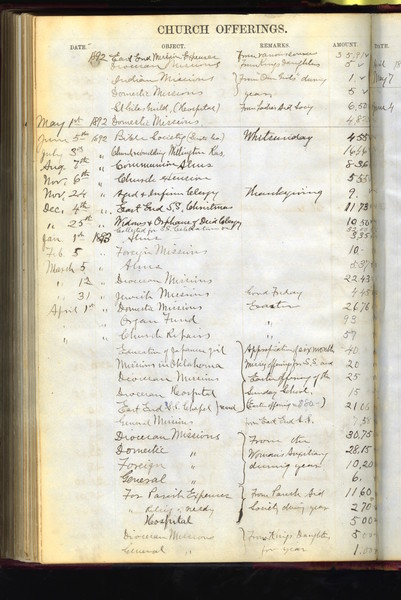 CHURCH OFFERINGS.
DATE. OBJECT. REMARKS. AMOUNT. DATE.
1892 East End Mission Expenses From
Diocesan Missions Ministering Daughters 5
Indian Missions From Our Girls during 1 May 7
Domestic Missions year 5
Guild (Hospital) From Ladies Aid Socy 6.50
May 1st 1892 Domestic Missions
June 5th 1892 Bible Society Whitsunday 4.55
July 3rd " Church Wellington Kas.
Aug. 7th " Communion Alms 8.36
Nov. 6th " Church Extension 5.55
Nov. 24 " Aged & Infirm Clergy Thanksgiving 9.
Dec. 4th " East End S.S. Christmas 11.73
" 25th " Widows & Orphans of Decd Clergy 10.50
Collected for S.S. Celebration
Jan. 1st 1893 Alms 3.35
Feb. 5 " Foreign Missions 10.
March 5 " Alms
" 12 " Diocesan Missions 22.43
" 31 " Jewish Missions Good Friday 4.45
April 1st " Domestic Missions Easter 26.76
" " Organ Fund " 93
" " Church Repairs " 59
Education of Japanese girl Appropriation (six months 40.
Missions in Oklahoma offering for S.S. and 20
Diocesan Missions Easter offering of the 25
Diocesan Hospital Sunday School 15
East End S.S. Chapel fund Easter offering 21.06
General Missions from East End S.S.
Diocesan Missions From the 30.75
Domestic " Woman's Auxiliary 28.15
Foreign " during year 10.20
General " 6.
For Parish Expenses From Parish Aid 11.60
" Relief of needy Society during year 270
Hospital 5.00
Diocesan Missions From Kings Daughters 5.00
General " for year 1.00